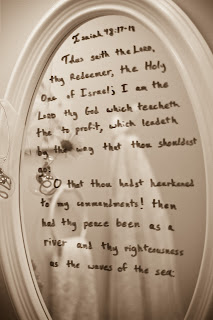 Isaiah 48:17-18
Thus seith the LORD,
thy Redeemer, the Holy
One of Israel; I am the
LORD thy God which teacheth
the to profit, which leadeth
by the way that thou shouldist
go:
O that thou hadst hearkened
to my commandments! then
had thy peace been as a
river and thy righteousness
as the waves of the sea: